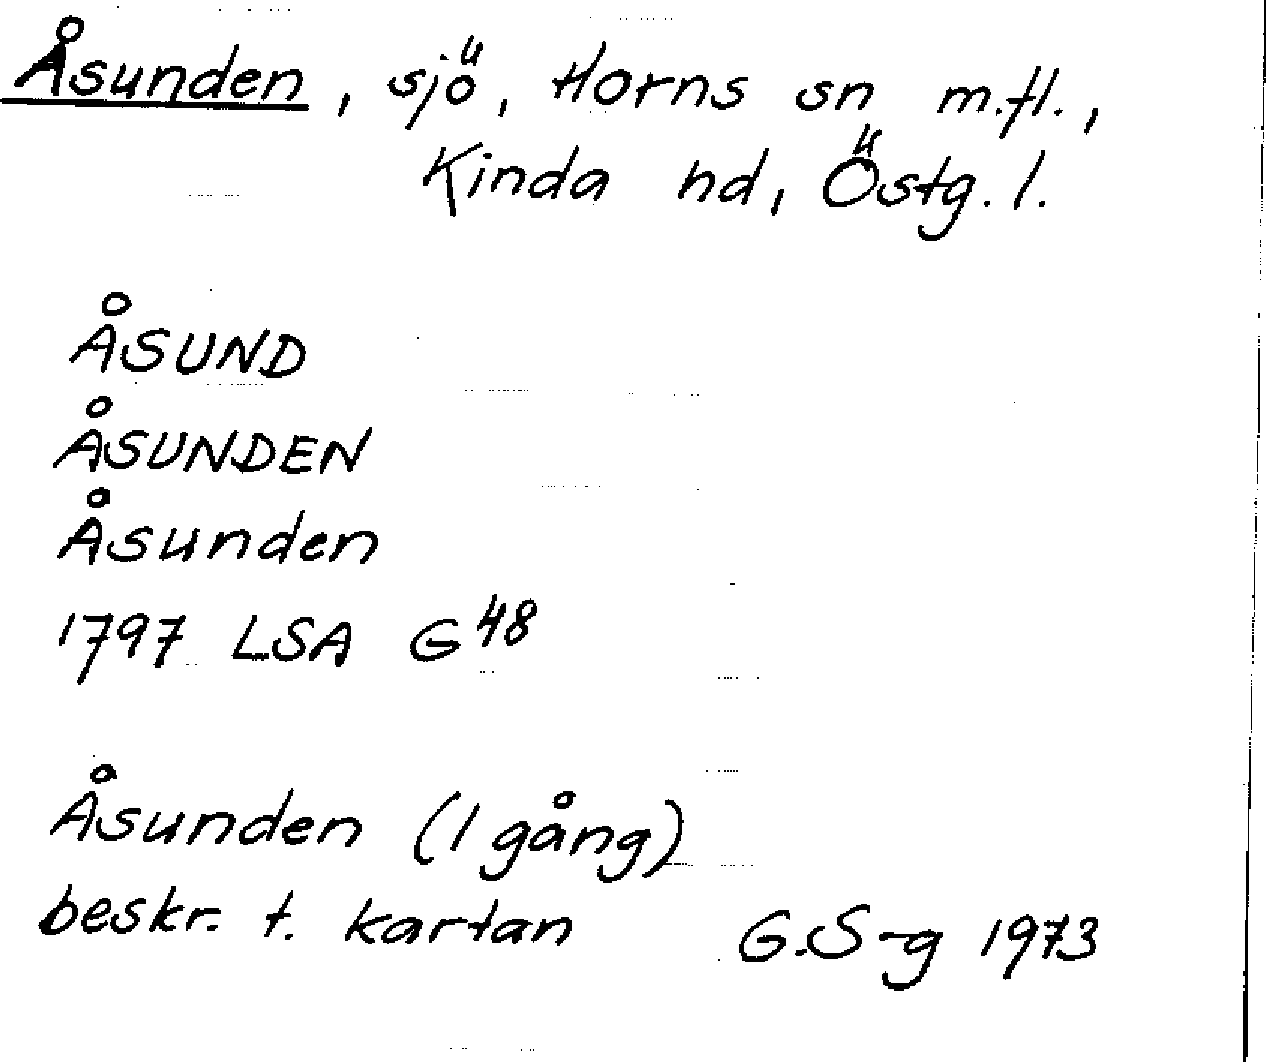 Åsunden, sjö, Horns sn m.fl.,
Kinda hd, Östg. l.
ÅSUND
ÅSUNDEN
Åsunden
1797 LSA G 48
Åsunden (1 gång)
beskr. t. kartan
G.S-g 1973